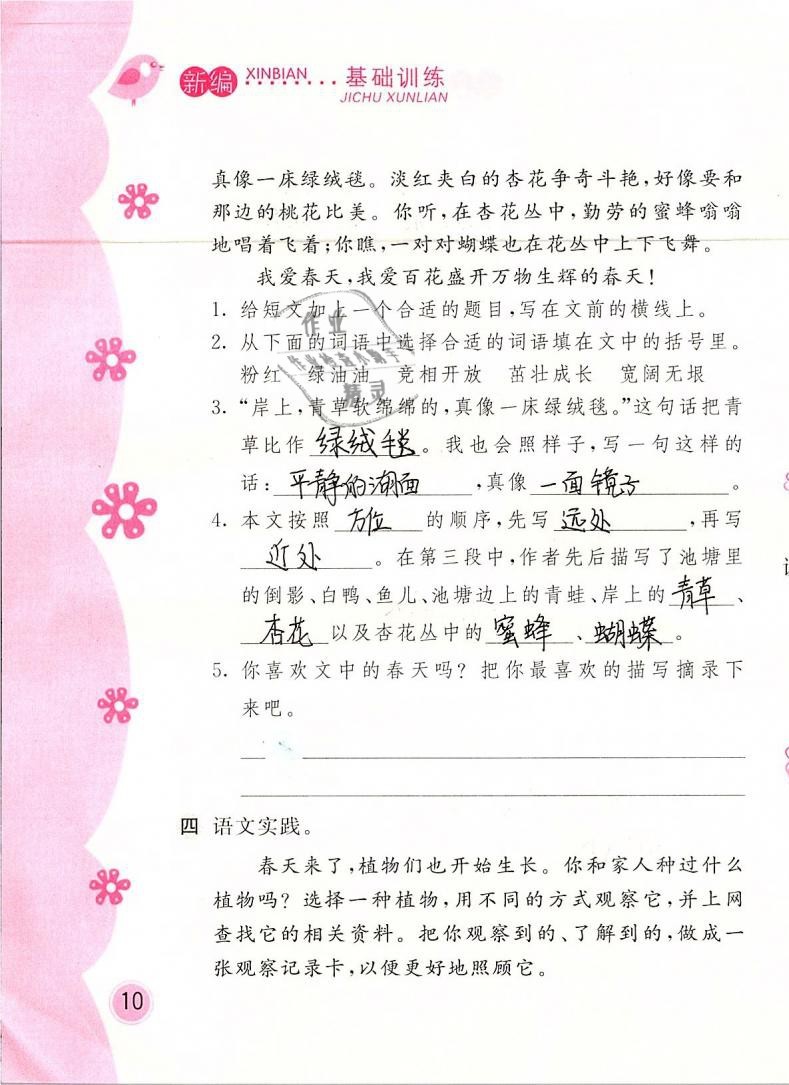 新编 XINBIAN 基础训练
JICHU XUNLIAN
真像一床绿绒毯。淡红夹白的杏花争奇斗艳,好像要和
那边的桃花比美。你听,在杏花丛中,勤劳的蜜蜂嗡嗡
地唱着飞着;你瞧,一对对蝴蝶也在花丛中上下飞舞。
我爱春天,我爱百花盛开万物生辉的春天!
1. 给短文加上一个合适的题目,写在文前的横线上。
2. 从下面的词语中选择合适的词语填在文中的括号里。
粉红 绿油油 竞相开放 茁壮成长 宽阔无垠
3. “岸上,青草软绵绵的,真像一床绿绒毯。”这句话把青
草比作 绿绒毯 。我也会照样子,写一句这样的
话: 平静的湖面 ,真像 一面镜子 。
4. 本文按照 方位 的顺序,先写 远处 ,再写
近处 。在第三段中,作者先后描写了池塘里
的倒影、白鸭、鱼儿、池塘边上的青蛙、岸上的 青草 、
杏花 以及杏花丛中的 蜜蜂 、 蝴蝶 。
5. 你喜欢文中的春天吗? 把你最喜欢的描写摘录下
来吧。
四 语文实践。
春天来了,植物们也开始生长。你和家人种过什么
植物吗? 选择一种植物,用不同的方式观察它,并上网
查找它的相关资料。把你观察到的、了解到的,做成一
张观察记录卡,以便更好地照顾它。
10